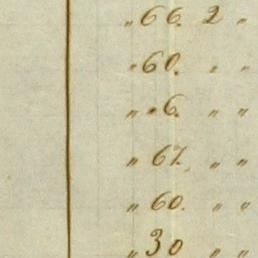 „ 66. 2 „
„ 60. „ „
„ „ 6. „ „
„ 67. „ „
„ 60. „ „
„ 30 „ „